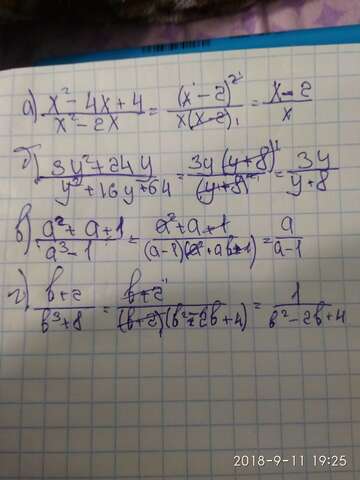 а) x² - 4x + 4 / x² - 2x = (x - 2)² / x(x - 2) = x - 2 / x
б) 3y² + 24y / y² + 16y + 64 = 3y(y + 8) / (y + 8)² = 3y / y + 8
в) a² + a + 1 / a³ - 1 = a² + a + 1 / (a - 1)(a² + a + 1) = a / a - 1
г) b + 2 / b³ + 8 = b + 2 / (b + 2)(b² - 2b + 4) = 1 / b² - 2b + 4
2018-9-11 19:25